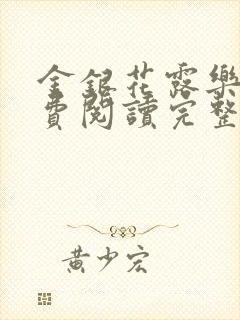 金銀花露樂
費閱讀完整
黃少宏